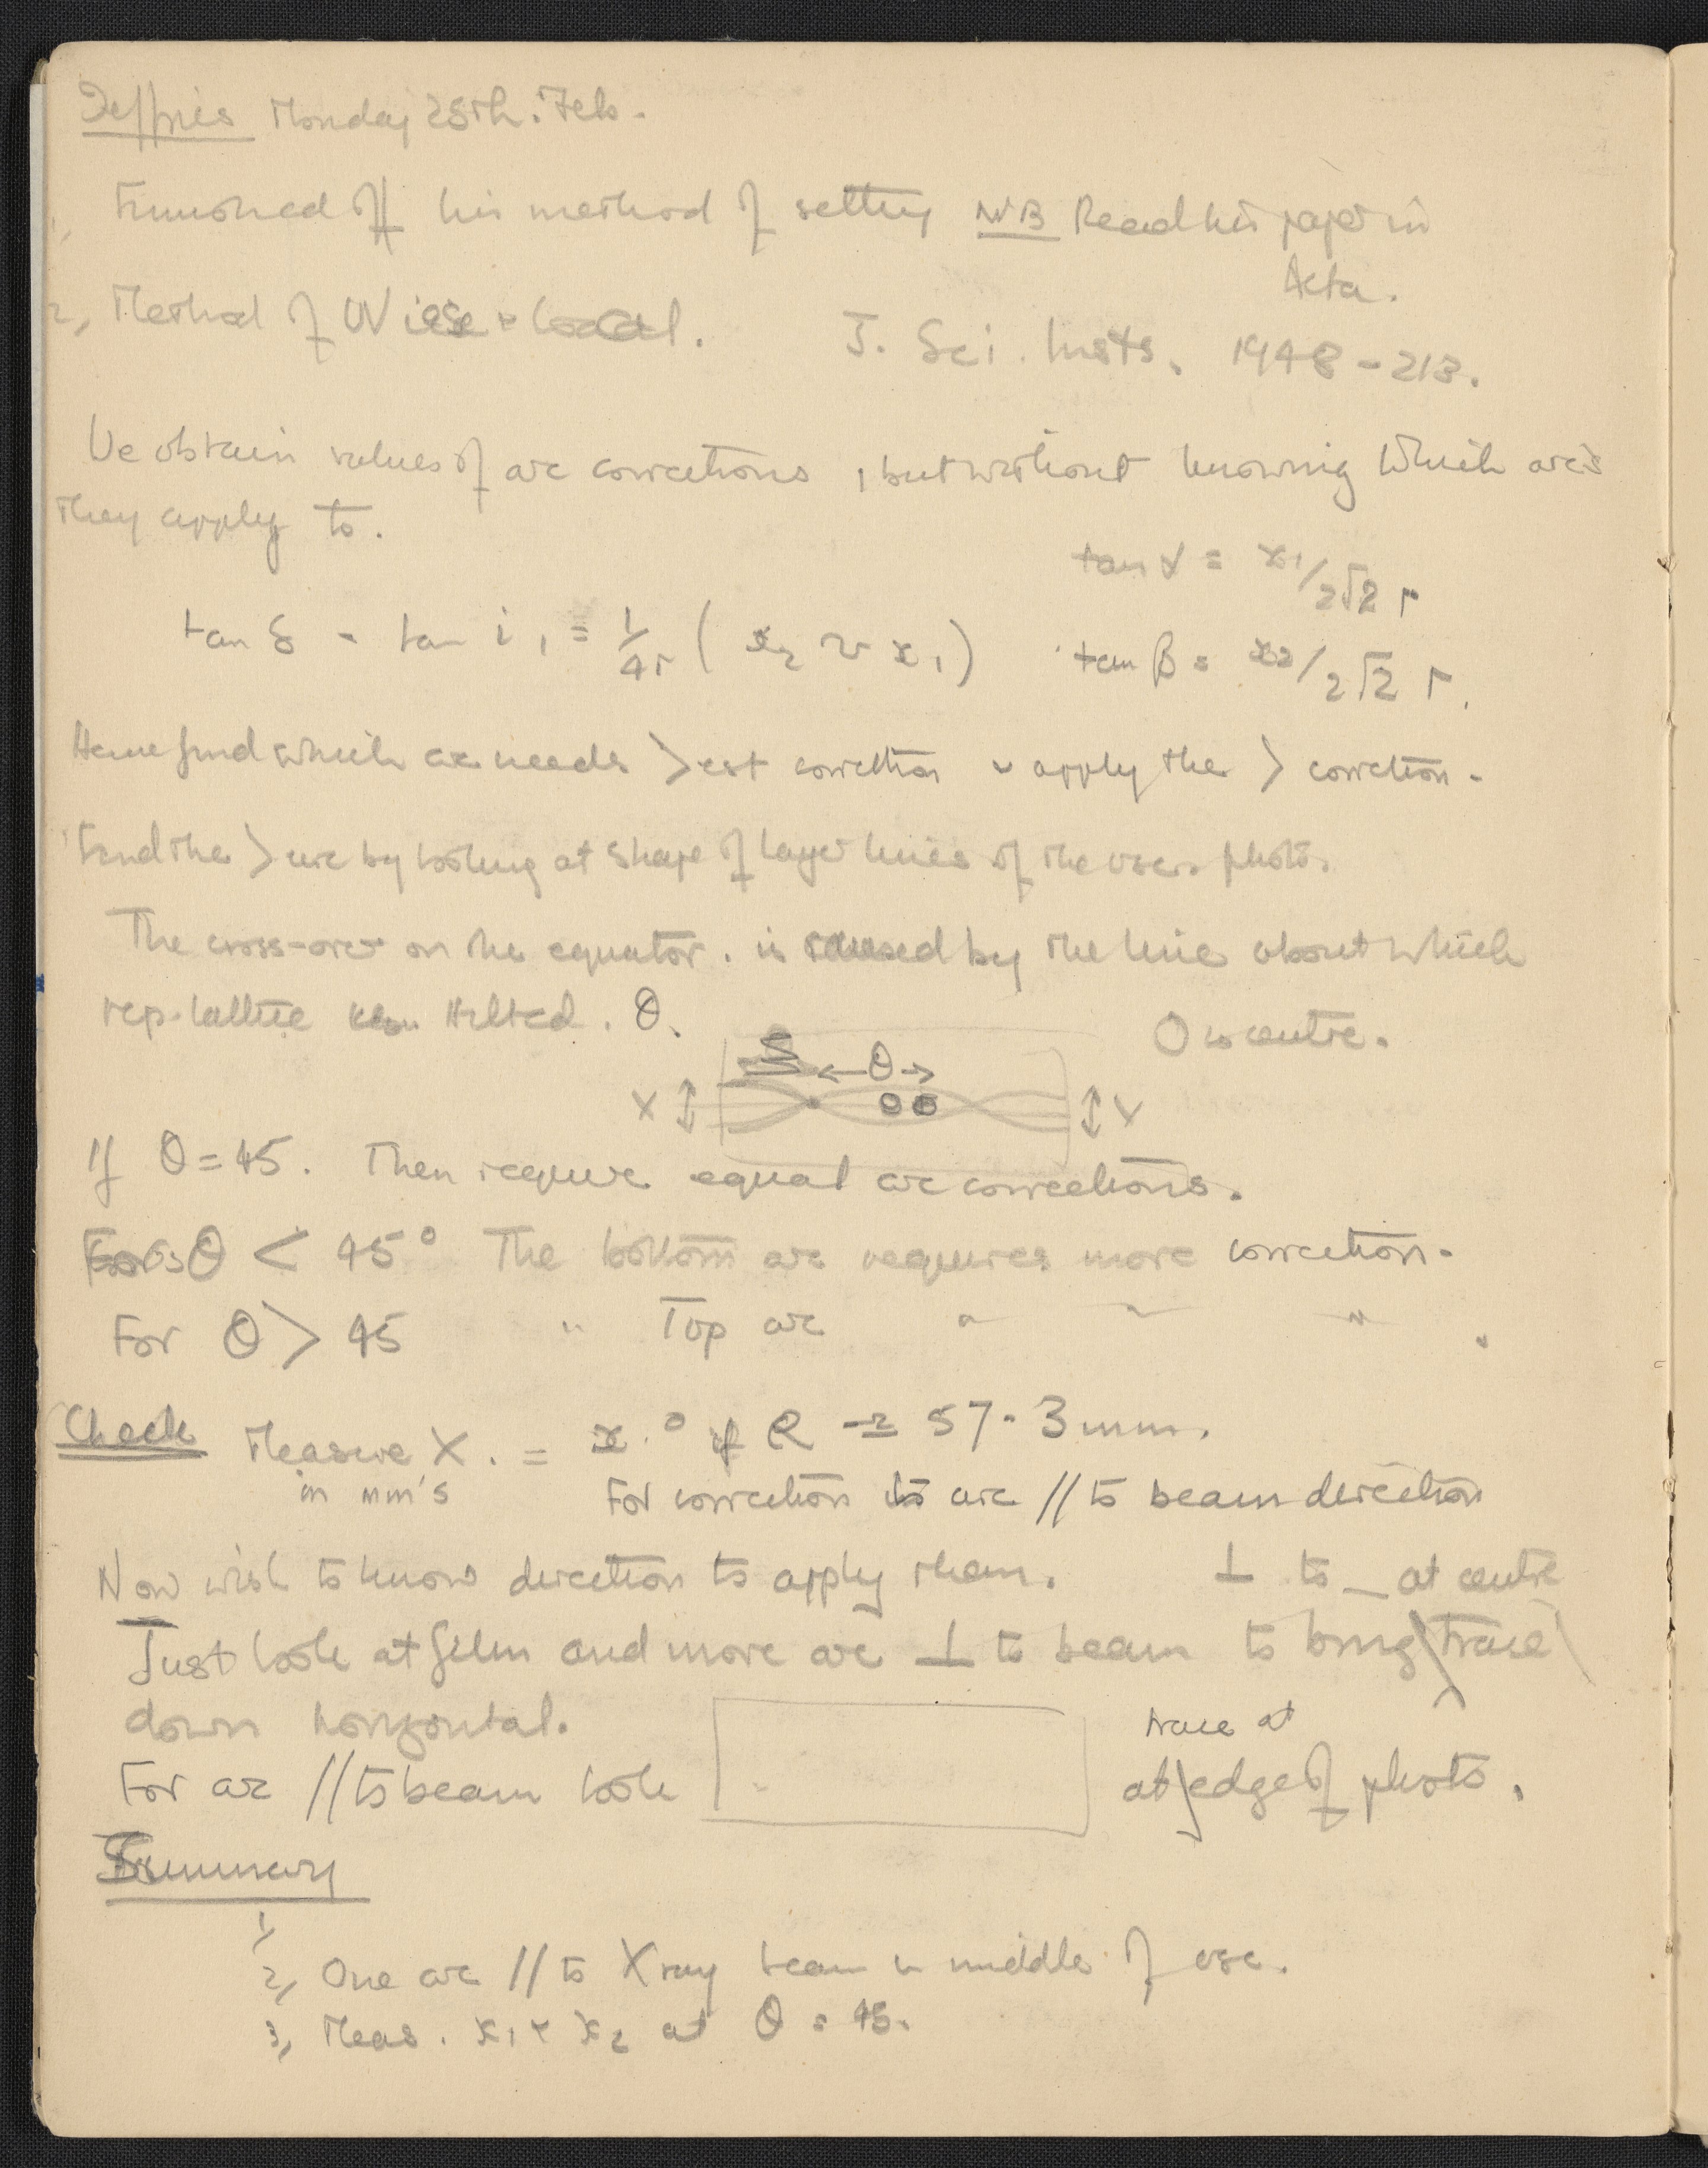 Jeffries Monday 28th. Feb.
1, Finished off his method of setting NB Read his paper in
Acta.
2, Method of W
J. Sci. Insts. 1948 - 213.
We obtain values of arc corrections, but without knowing which arcs
they apply to.
tan α = x1/2√2 r
tan δ - tan i1 = 1/4r ( x2 ~ x1 )
tan β = x2/2√2 r.
Hence find which arc needs >est correction & apply the > correction.
Find the > arc by looking at shape of layer lines of the osc. photo.
The cross-over on the equator. is caused by the line about which
rep. lattice tilted. θ.
O is centre.
← θ →
X ↕
↕ Y
If θ = 45. Then require equal arc corrections.
For θ < 45° The bottom arc requires more correction.
For θ > 45 " Top arc " " " "
Check Measure X. = x.° if R = 57.3mm.
in mm's
For correction to arc // to beam direction
Now wish to know direction to apply them.
⊥ to _ at centre
Just look at film and move arc ⊥ to beam to bring trace
down horizontal.
trace at
For arc // to beam look
at edge of photo.
Summary
1,
2, One arc // to Xray beam in middle of osc.
3, Meas. x1 & x2 at θ = 45.